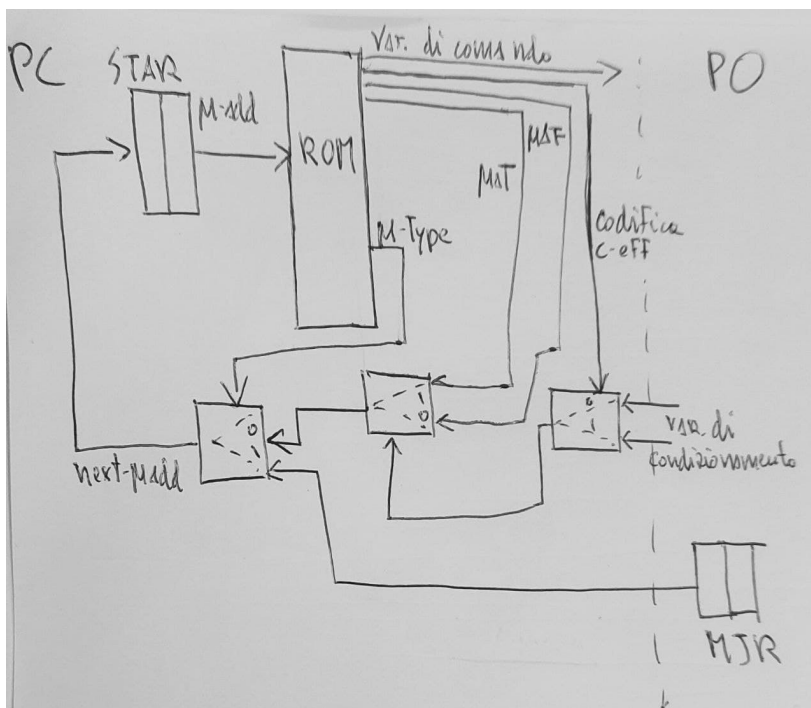 PC
STAR
μ-add
ROM
Var. di comando
PO
μaT
μaF
codifica
c-eff
μ-Type
0
0
0
1
var. di
condizionamento
next-μadd
MJR